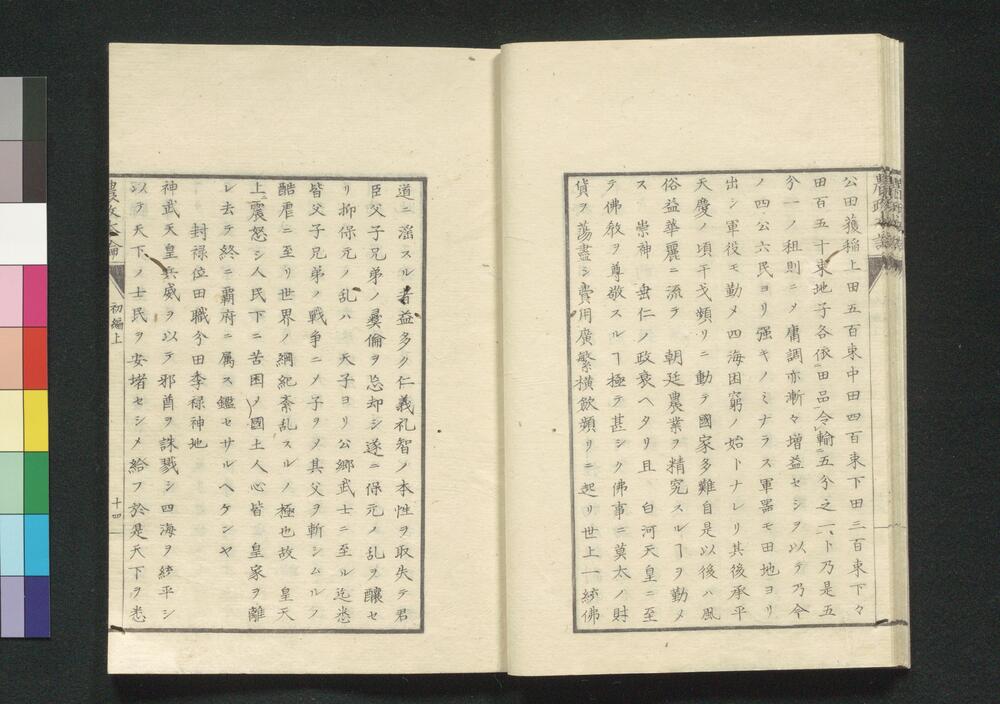 公田獲稲上田五百束中田四百束下田三百束下々
田百五十束地子各依田品令輸五分之一ト乃是五
分一ノ租則ニメ庸調亦漸々増益セシヲ以テ乃今
ノ四公六民ヨリ强キノミナラス軍器モ田地ヨリ
出シ軍役モ勤メ四海困窮ノ始トナレリ其後承平
天慶ノ頃干戈頻リニ動テ國家多難自是以後ハ風
俗益華麗ニ流テ 朝廷農業ヲ精究スルヿヲ勤メ
ス 崇神 垂仁ノ政衰ヘタリ且 白河天皇ニ至
テ佛教ヲ尊敬スルヿ極テ甚シク佛事ニ莫太ノ財
貨ヲ蕩盡シ費用廣繁横歛頻リニ起リ世上一統佛
道ニ溺スル者益多ク仁義礼智ノ本性ヲ取失テ君
臣父子兄弟ノ彛倫ヲ忘却シ遂ニ保元ノ乱ヲ釀セ
リ抑保元ノ乱ハ 天子ヨリ公郷武士ニ至ル迄悉
皆父子兄弟ノ戦争ニメ子ヲメ其父ヲ斬シムルノ
酷虐ニ至リ世界ノ綱紀紊乱スルノ極也故 皇天
上ニ震怒シ人民下ニ苦困メ國土人心皆 皇家ヲ離
レ去テ終ニ覇府ニ属ス鑑セサルヘケンヤ
封禄位田職分田季禄神地
神武天皇兵威ヲ以テ邪酋ヲ誅戮シ四海ヲ統平シ
以テ天下ノ士民ヲ安堵セシメ給フ於是天下ヲ悉
農政本論
初編上
十四